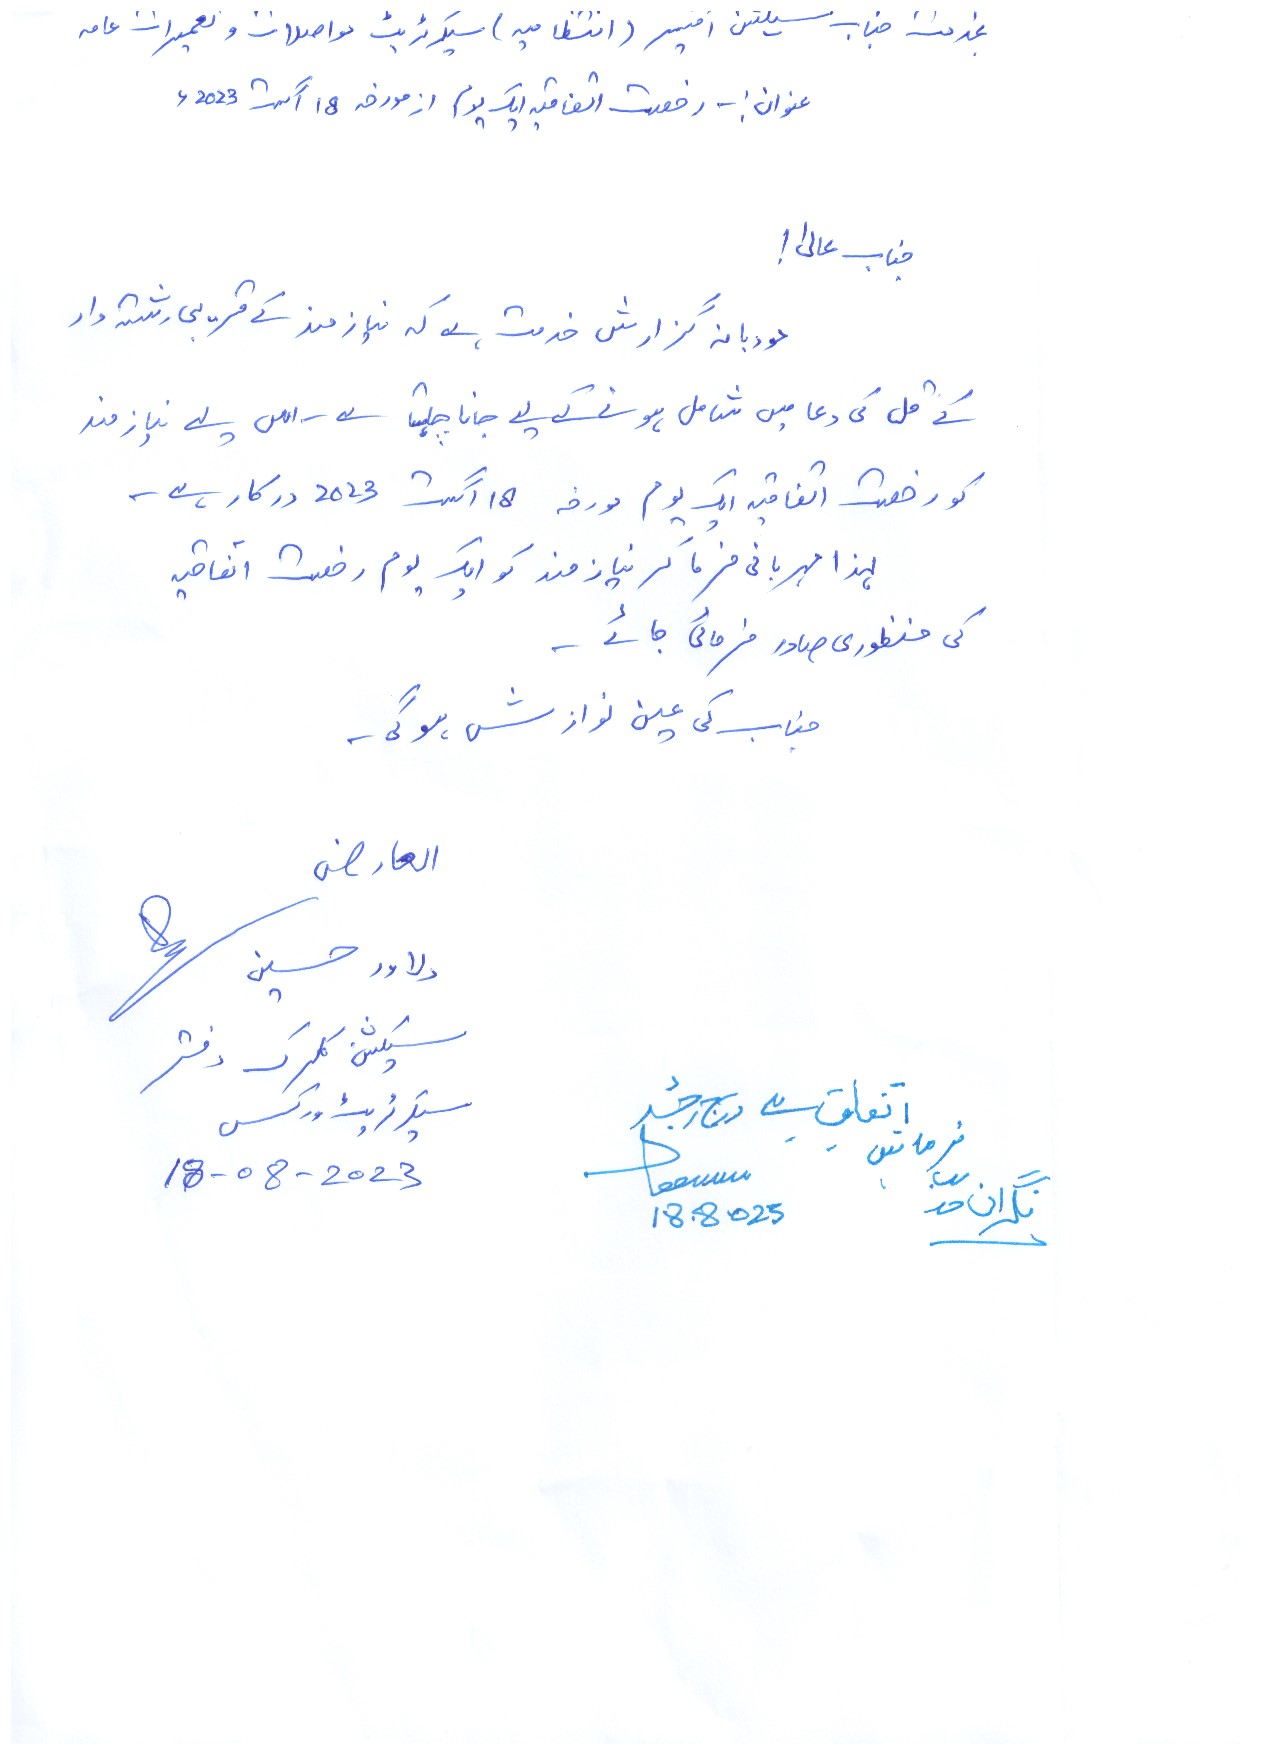 بخدمت جناب سیکشن آفیسر (انتظامیہ) سیکرٹریٹ مواصلات و تعمیرات عامہ
عنوان:- رخصت اتفاقیہ ایک یوم از مورخہ 18 اگست 2023ء
جناب عالی!
مودبانہ گزارش خدمت ہے کہ نیازمند کے قریبی رشتہ دار
کے قل کی دعا میں شامل ہونے کے لیے جانا چاہتا ہے۔ اس لیے نیازمند
کو رخصت اتفاقیہ ایک یوم مورخہ 18 اگست 2023 درکار ہے۔
لہذا مہربانی فرما کر نیازمند کو ایک یوم رخصت اتفاقیہ
کی منظوری صادر فرمائی جائے۔
جناب کی عین نوازش ہوگی۔
العارض
دلاور حسین
سیکشن کلرک دفتر
سیکرٹریٹ ورکس
18-08-2023
اتفاق ہے درج رجسٹر
فرمائیں
18.8.023
نگران